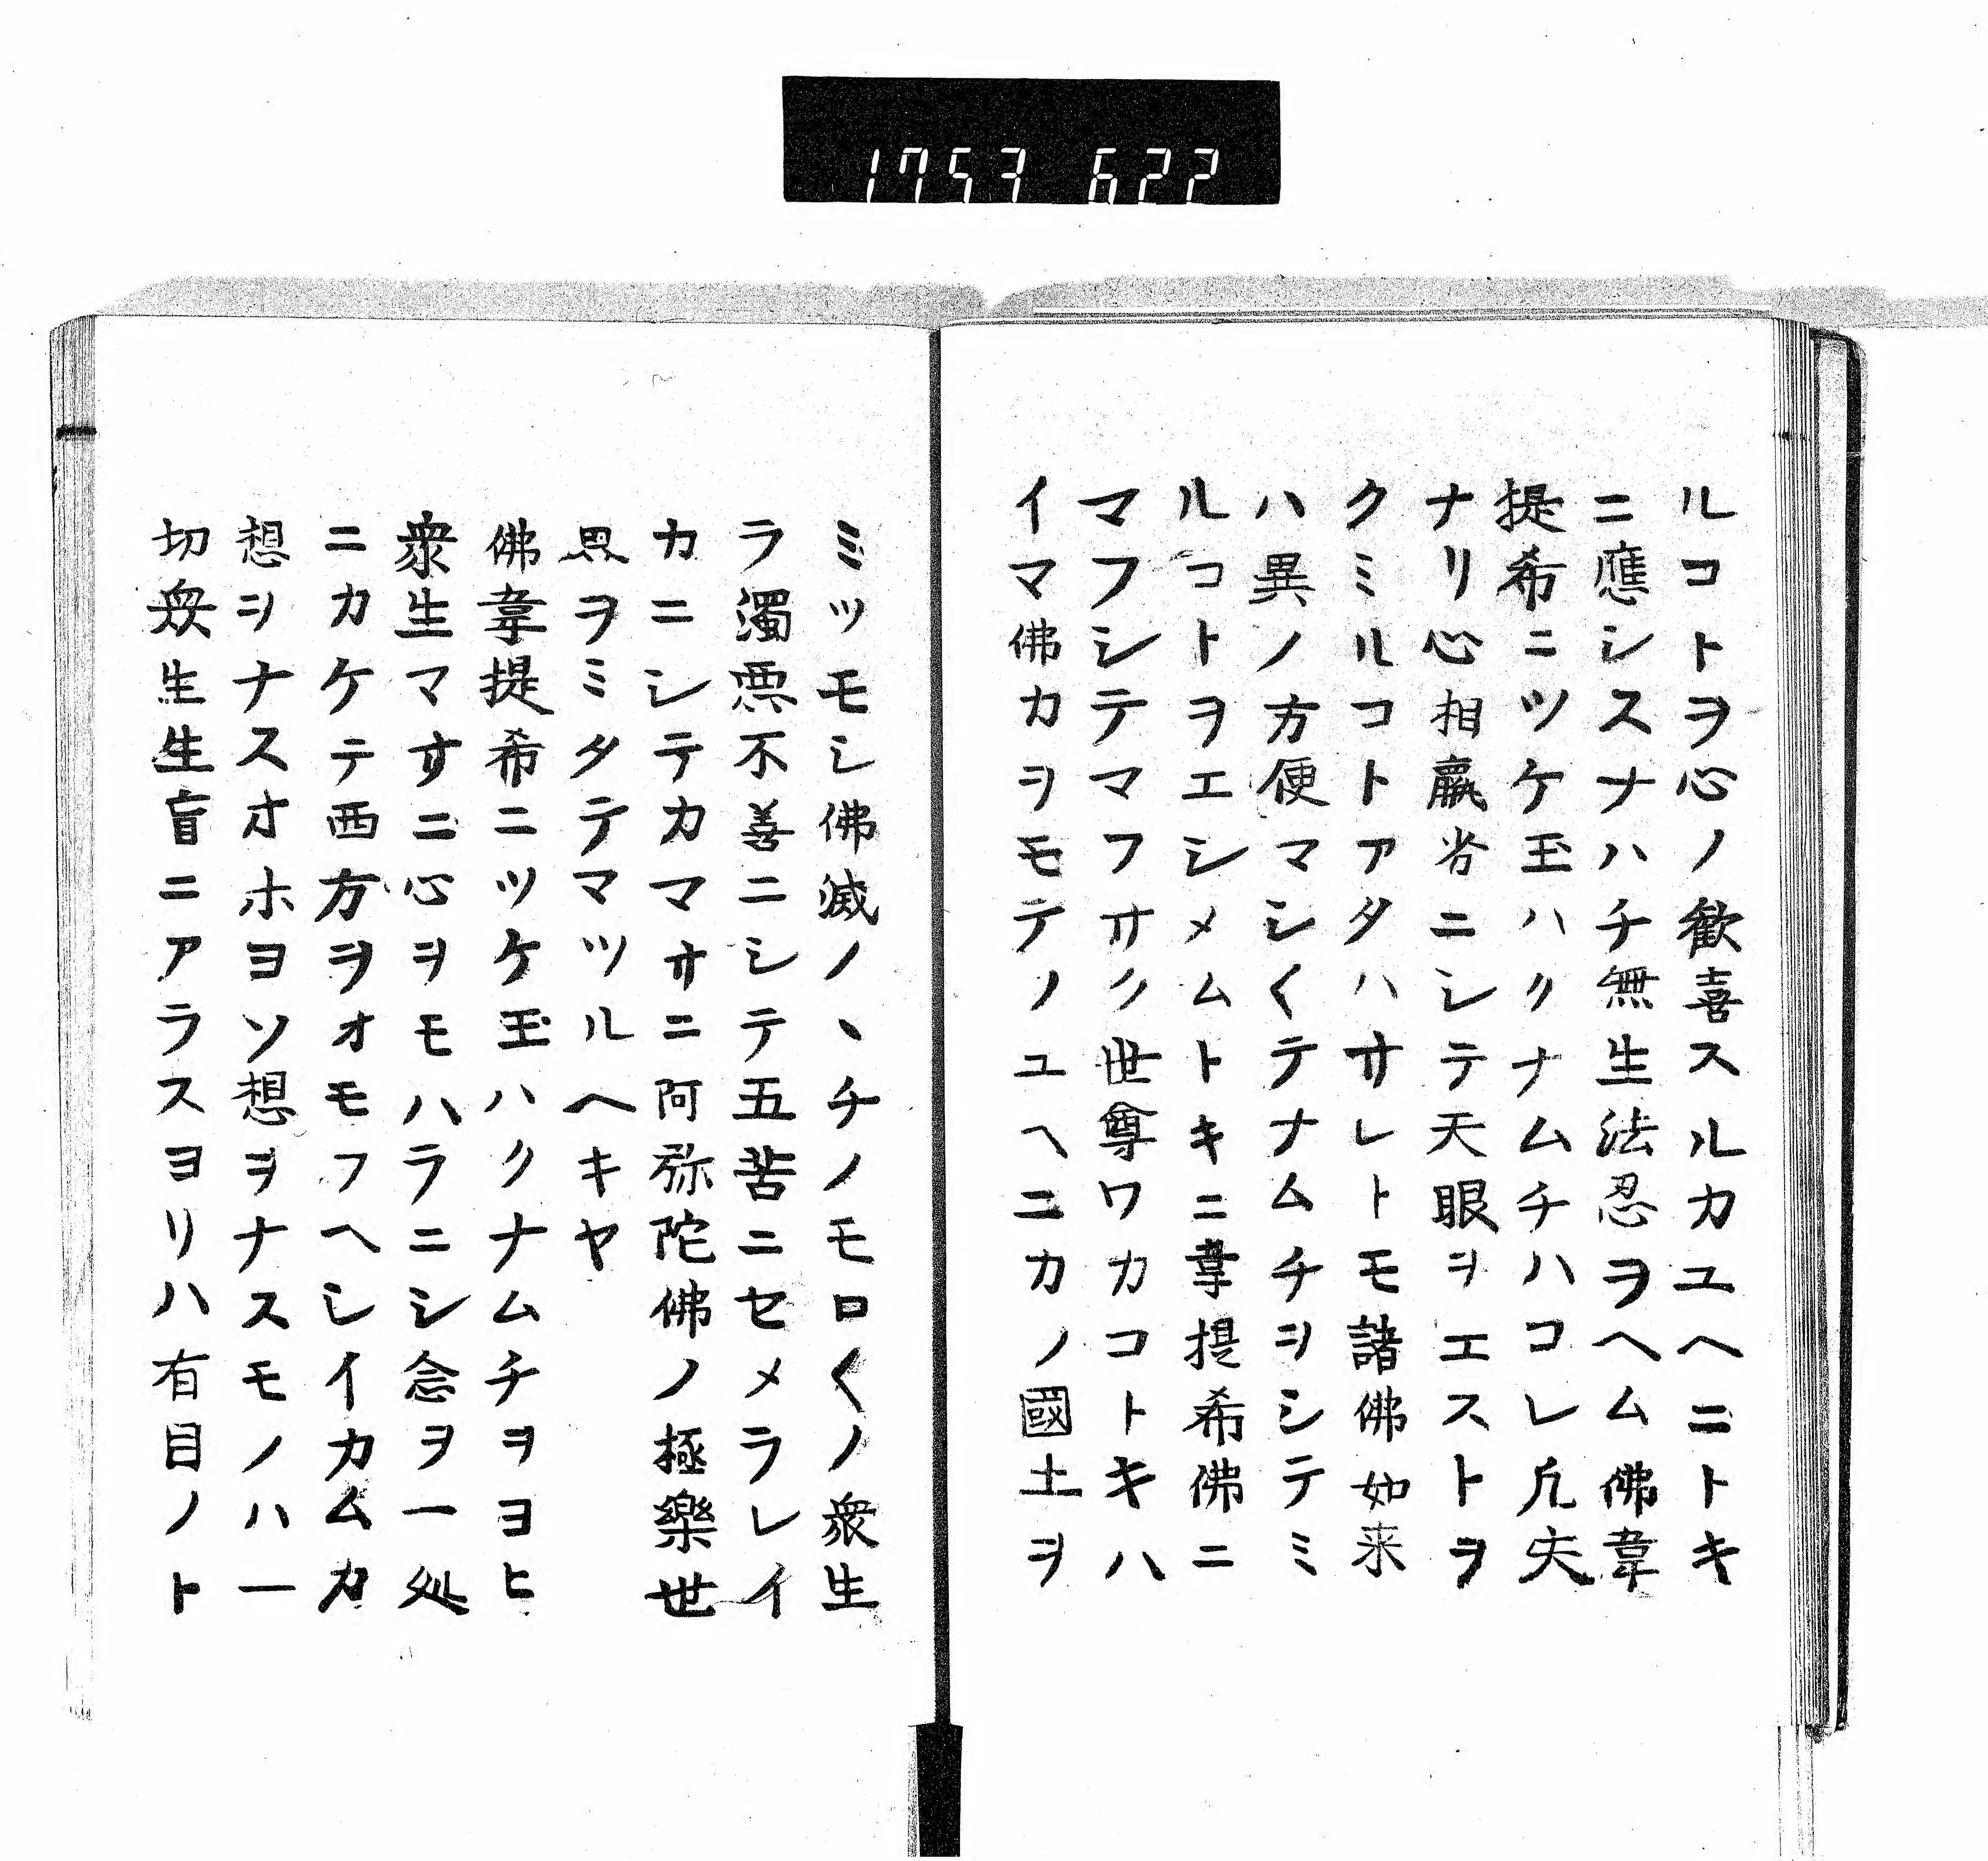 1753 622
ルコトヲ心ノ歓喜スルカユヘニトキ
ニ應シスナハチ無生法忍ヲヘム佛韋
提希ニツケ玉ハクナムチハコレ凡夫
ナリ心相羸劣ニシテ天眼ヲエストヲ
クミルコトアタハサレトモ諸佛如来
ハ異ノ方便マシ〱テナムチヲシテミ
ルコトヲエシメムトキニ韋提希佛ニ
マフシテマフサク世尊ワカコトキハ
イマ佛カヲモテノユヘニカノ國土ヲ
ミツモシ佛滅ノヽチノモロ〱ノ衆生
ラ濁悪不善ニシテ五苦ニセメラレイ
カニシテカマサニ阿弥陀佛ノ極樂世
界ヲミタテマツルヘキヤ
佛韋提希ニツケ玉ハクナムチヲヨヒ
衆生マサニ心ヲモハラニシ念ヲ一処
ニカケテ西方ヲオモフヘシイカムカ
想ヲナスオホヨソ想ヲナスモノハ一
切衆生生盲ニアラスヨリハ有目ノト